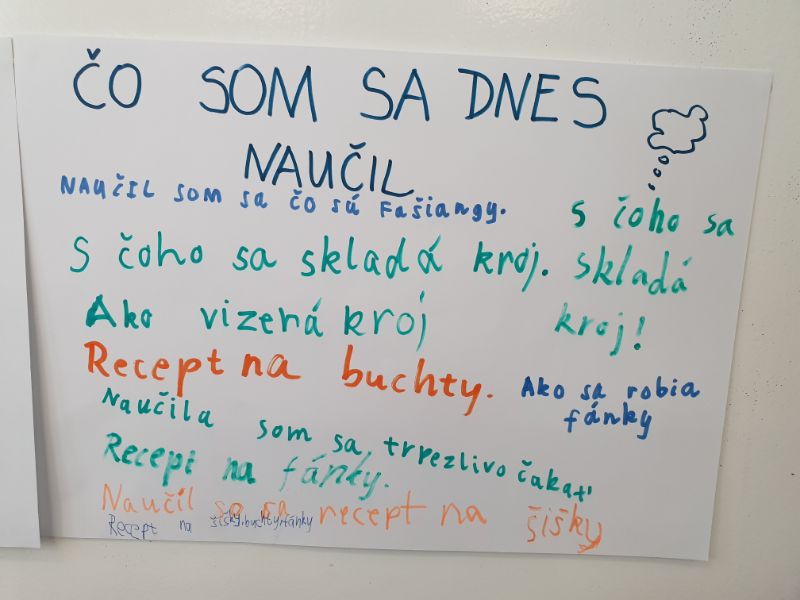 ČO SOM SA DNES
NAUČIL
NAUČIL SOM sa čo sú Fašiangy.
S čoho sa skladá kroj.
S čoho sa
skladá
kroj!
Ako vizená kroj
Recept na buchty.
Ako sa robia
fánky
Naučila som sa trpezlivo čakať
Recept na fánky.
Naučil so sa recept na šišky
Recept na šišky, buchty, fánky